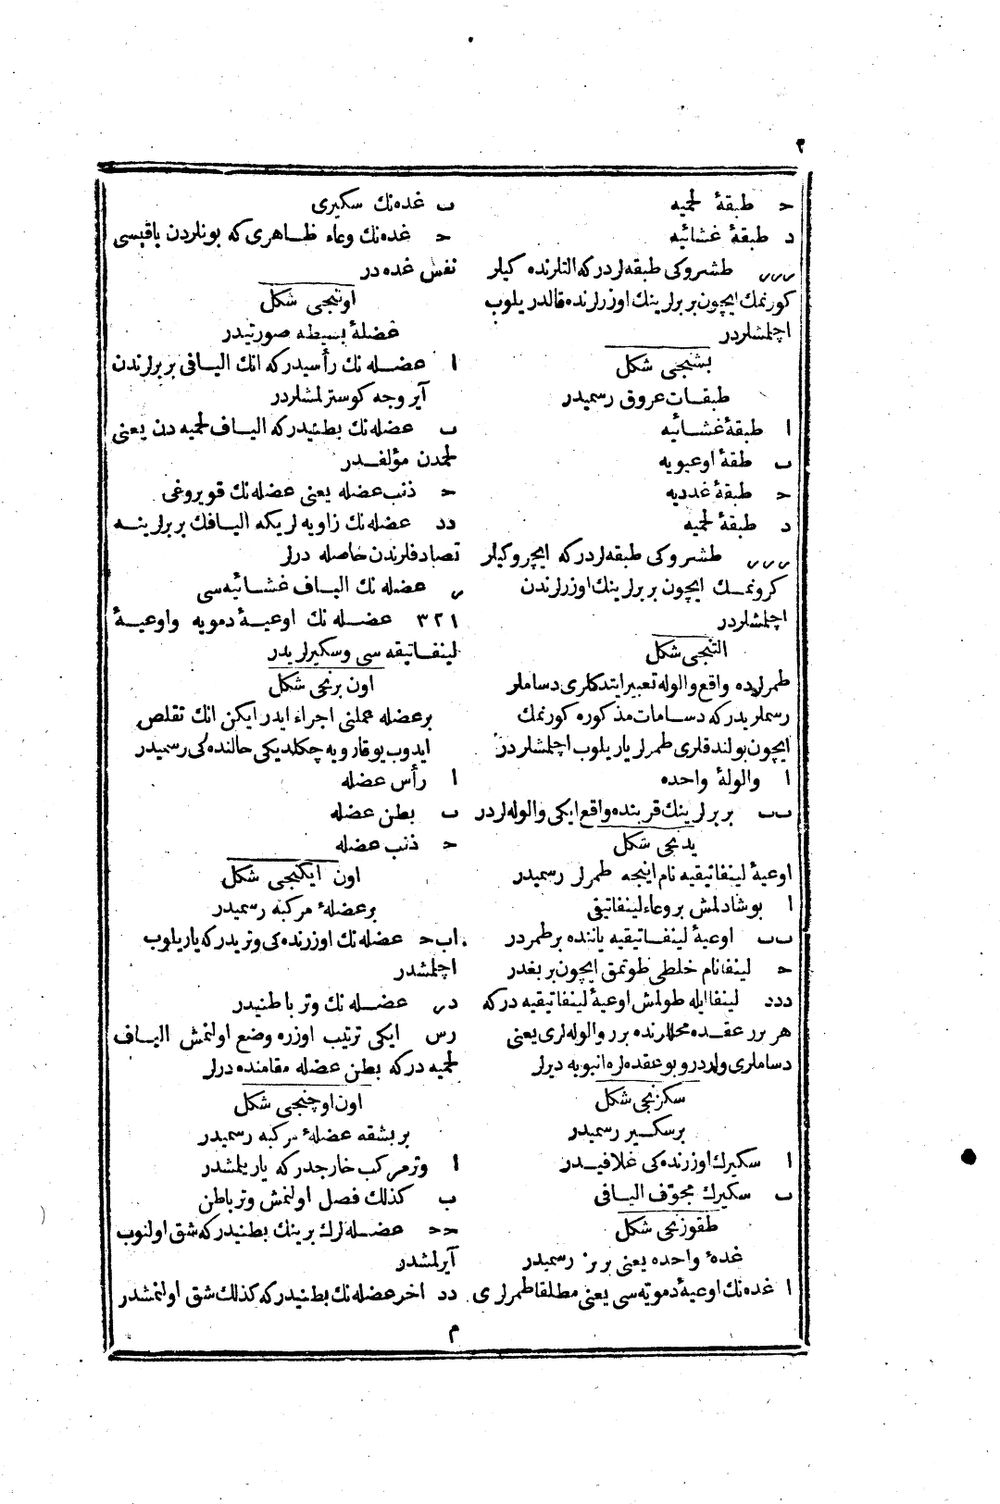 ٣
ح طبقهٔ لحمیه
د طبقهٔ غشائیه
ررر طشروکی طبقه‌لردر که التلرنده کیلر
کورنمك ایچون بربرلرینك اوزرلرنده قالدریلوب
اچلمشلردر
بشنجی شکل
طبقات عروق رسمیدر
ا طبقهٔ غشائیه
ب طقهٔ اوعیویه
ح طبقهٔ غددیه
د طبقهٔ لحمیه
ررر طشروکی طبقه‌لردر که ایچروکیلر
کرونمك ایچون بربرلرینك اوزرلرندن
اچلمشلردر
التنجی شکل
طمرلرده واقع والوله تعبیر ایتدکلری دساملر
رسملریدر که دسامات مذکوره کورنمك
ایچون بولندقلری طمرلر یاریلوب اچلمشلردر
ا والولهٔ واحده
ب‌ب بربرلرینك قربنده واقع ایکی والوله‌لردر
یدنجی شکل
اوعیهٔ لینفاتیقیه نام اینجه طمرلر رسمیدر
ا بوشادلمش بروعاء لینفاتیقی
ب‌ب اوعیهٔ لینفاتیقیه یاننده برطمردر
ح لینفا نام خلطی طوتمق ایچون بربغدر
ددد لینفا ایله طولمش اوعیهٔ لینفاتیقیه درکه
هر برر عقده محللرنده برر والوله‌لری یعنی
دساملری واردر و بو عقده‌لره انبوبه دیرلر
سکزنجی شکل
برسکیر رسمیدر
ا سکیرك اوزرنده کی غلافیدر
ب سکیرك مجوّف الیافی
طقوزنجی شکل
غدهٔ واحده یعنی بر بز رسمیدر
ا غده‌نك اوعیهٔ دمویّه سی یعنی مطلقا طمرلری
ب غده‌نك سکیری
ح غده‌نك وعاء ظاهری که بونلردن باقیسی
نفس غده‌در
اوننجی شکل
عضلهٔ بسیطه صورتیدر
ا عضله نك رأسیدرکه انك الیافی بربرلرندن
آیروجه کوسترلمشلردر
ب عضله نك بطنیدرکه الیاف لحمیه دن یعنی
لحمدن مؤلفدر
ح ذنب عضله یعنی عضله نك قویروغی
دد عضله نك زاویه لریکه الیافك بربرلرینه
تصادفلرندن حاصله درلر
ر عضله نك الیاف غشائیه سی
٣٢١ عضله نك اوعیهٔ دمویه واوعیهٔ
لینفاتیقه سی وسکیرلریدر
اون برنجی شکل
برعضله عملنی اجراء ایدر ایکن انك تقلص
ایدوب یوقارویه چکلدیکی حالنده کی رسمیدر
ا رأس عضله
ب بطن عضله
ح ذنب عضله
اون ایکنجی شکل
برعضلهٔ مرکبه رسمیدر
اب‌ح عضله نك اوزرنده کی وتریدرکه یاریلوب
اچلمشدر
در عضله نك وتر باطنیدر
رس ایکی ترتیب اوزره وضع اولنمش الیاف
لحمیه درکه بطن عضله مقامنده درلر
اون اوچنجی شکل
بر بشقه عضلهٔ مرکبه رسمیدر
ا وتر مرکب خارجدرکه یاریلمشدر
ب کذلك فصل اولنمش وتر باطن
ح‌ح عضله لرك برینك بطنیدرکه شق اولنوب
آیرلمشدر
دد اخر عضله نك بطنیدرکه کذلك شق اولنمشدر
م